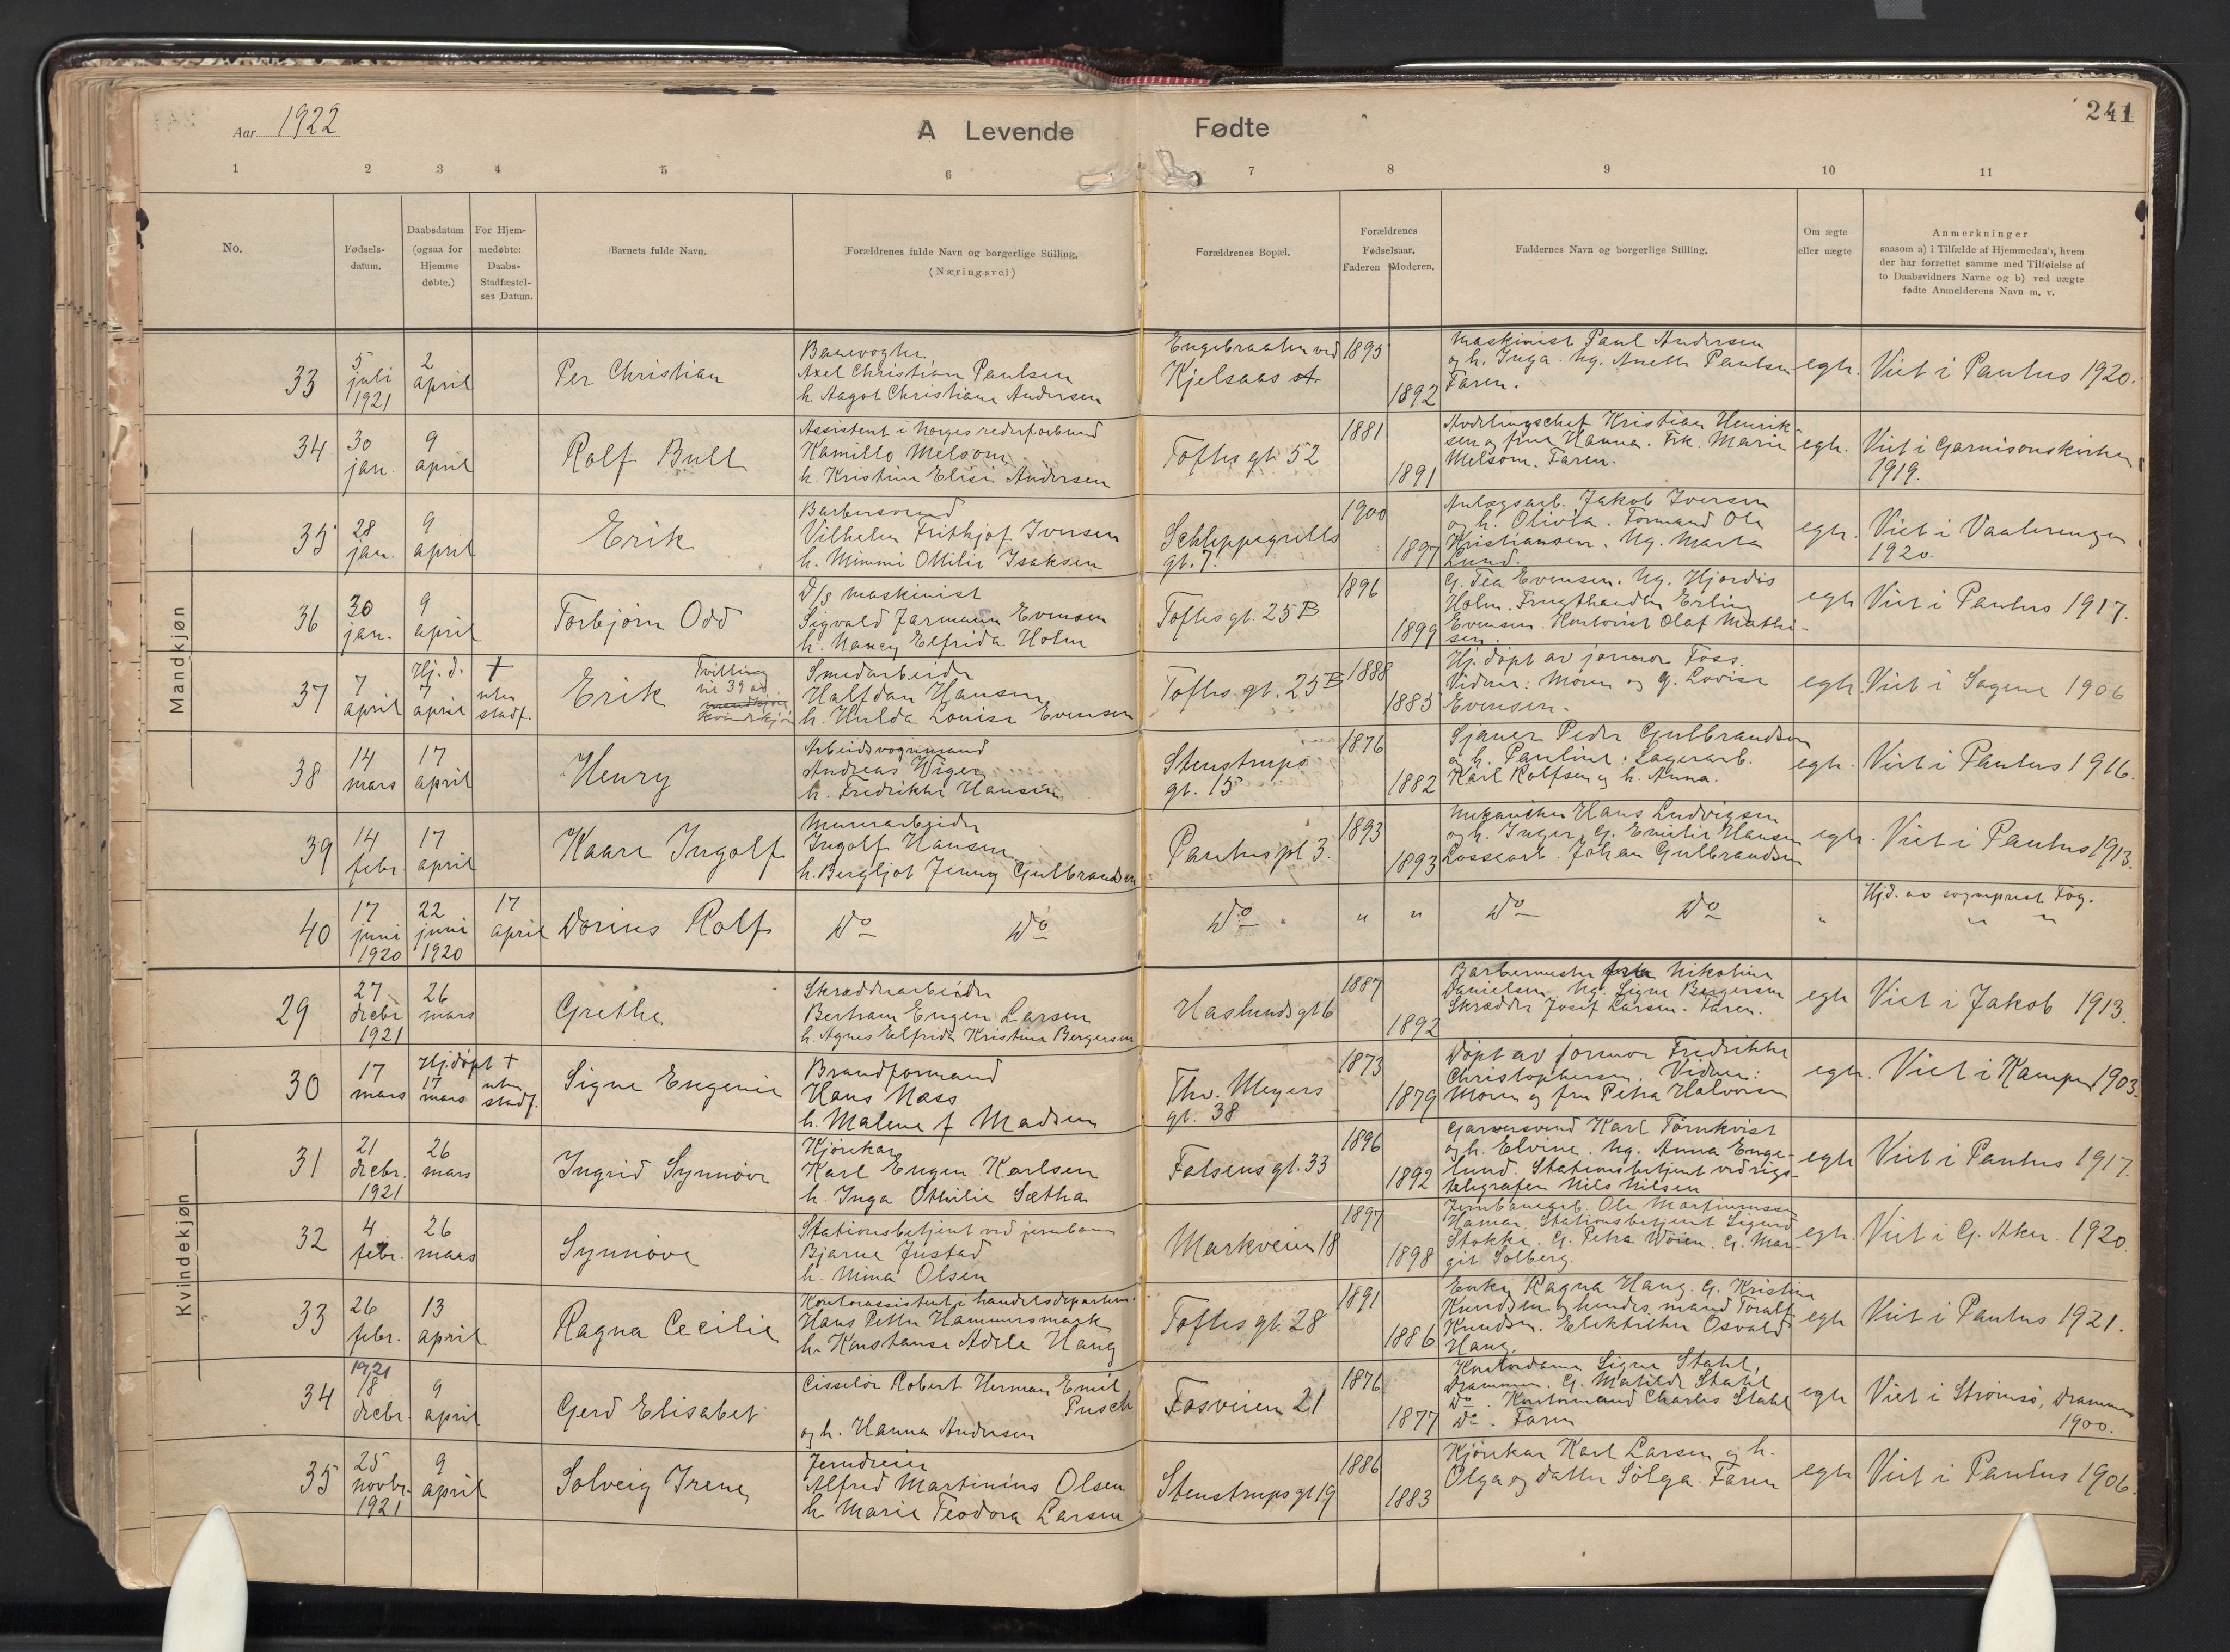 241
Aar 1922
A Levende Fødte
1 2 3 4 5 6 7 8 9 10 11
No.
Fødsels-
datum.
Daabsdatum
(ogsaa for
Hjemme
døbte.)
For Hjem-
medøbte:
Daabs-
Stadfæstel-
ses Datum.
Barnets fulde Navn.
Forældrenes fulde Navn og borgerlige Stilling.
(Næringsvei)
Forældrenes Bopæl.
Forældrenes
Fødselsaar.
Faderen Moderen.
Faddernes Navn og borgerlige Stilling.
Om ægte
eller uægte
Anmerkninger
saasom a) i Tilfælde af Hjemmedaa's, hvem
der har forrettet samme med Tilføielse af
to Daabsvidners Navne og b) ved uægte
fødte Anmelderens Navn m. v.
Mandkjøn
33
5
juli
1921
2
april
Per Christian
Banevogter
Axel Christian Paulsen
h. Aagot Christiane Andersen
Engebraaten ved
Kjelsaas st.
1895
1892
Maskinist Paul Andersen
og h. Inga. Ug. Anette Paulsen
Faren.
egte.
Viet i Paulus 1920.
34
30
jan.
9
april
Rolf Bull
Assistent i Norges rederforbund
Kamillo Melsom
h. Kristine Elise Andersen
Toftes gt. 52
1881
1891
Avdelingschef Kristian Henrik-
sen og frue Hanna. Frk. Marie
Melsom. Faren.
egte.
Viet i Garnisonskirken
1919.
35
28
jan.
9
april
Erik
Barbersvend
Vilhelm Frithjof Iversen
h. Mimmi Ottilie Isaksen
Schleppegrells
gt. 7.
1900
1897
Anlægsarb. Jakob Iversen
og h. Olivia. Formand Ole
Kristiansen. Ug. Marta
Lund.
egte.
Viet i Vaalerengen
1920.
36
30
jan.
9
april
Torbjørn Odd
D/s maskinist
Sigvald Jarmann Evensen
h. Nancy Elfrida Holm
Toftes gt. 25 B
1896
1899
G. Tea Evensen. Ug. Hjørdis
Holm. Frugthandler Erling
Evensen. Kontorist Olaf Mathi-
sen.
egte
Viet i Paulus 1917.
37
7
april
Hj. d.
7
april
†
uten
stadf.
Erik
Tvilling
til 39 av
mandkjøn
kvindekjøn
Smedarbeider
Halfdan Hansen
h. Hulda Louise Evensen
Toftes gt. 25 B
1888
1885
Hj. døpt av jormor Foss.
Vidner: Moren og G. Lovise
Evensen.
egte
Viet i Sagene 1906
38
14
mars
17
april
Henry
Arbeidsvognmand
Andreas Wiger
h. Fredrikke Hansen
Stenstrups
gt. 15
1876
1882
Sjauer Peder Gulbrandsen
og h. Pauline. Lagerarb.
Karl Rolfsen og h. Anna.
egte.
Viet i Paulus 1916.
39
14
febr.
17
april
Kaare Ingolf
Murerarbeider
Ingolf Hansen
h. Bergljot Jenny Gulbrandsen
Paulus pl. 3.
1893
1893
Mekaniker Hans Ludvigsen
og h. Inger. G. Emilie Hansen
Lossearb. Johan Gulbrandsen
egte.
Viet i Paulus 1913.
40
17
juni
1920
22
juni
1920
17
april
Dorius Rolf
Do Do
Do
" "
Do Do
"
Hjd. av sogneprest Fog.
" "
Kvindekjøn
29
27
decbr
1921
26
mars
Grethe
Skrædderarbeider
Bertram Eugen Larsen
h. Agnes Elfrida Kristine Bergersen
Haslunds gt 6
1887
1892
Barbermester Nikoline
Danielsen. Ug. Signe Bergersen
Skrædder Josef Larsen. Faren.
egte
Viet i Jakob 1913.
30
17
mars
Hj. døpt
17
mars
†
uten
stadf.
Signe Eugenie
Brandformand
Hans Næss
h. Malene f Madsen
Thv. Meyers
gt. 38
1873
1879
Døpt av jormor Fredrikke
Christophersen. Vidner:
Moren og fru Petra Halvorsen
egte.
Viet i Kampen 1903.
31
21
decbr.
1921
26
mars
Ingrid Synnøve
Kjørekar
Karl Eugen Karlsen
h. Inga Othilie Sætha
Falsens gt. 33
1896
1892
Garversvend Karl Törnkvist
og h. Elvine. Ug. Anna Enge-
lund. Stationsbetjent ved rigs-
telegrafen Nils Nilsen
egte
Viet i Paulus 1917.
32
4
febr.
26
mars
Synnøve
Stationsbetjent ved jernbanen
Bjarne Justad
h. Nina Olsen
Markveien 18
1897
1898
Jernbanearb. Ole Martinussen
Hamar. Stationsbetjent Sigurd
Stokke. G. Petra Woien. G. Mar-
git Solberg.
egte.
Viet i G. Aker. 1920.
33
26
febr.
13
april
Ragna Cecilie
Kontorassistent i handelsdepartem.
Hans Petter Hammersmark
h. Konstanse Adele Haug
Toftes gt. 28
1891
1886
Enke Ragna Haug. G. Kristine
Knudsen og hendes mand Toralf
Knudsen. Elektriker Osvald
Haug.
egte
Viet i Paulus 1921.
34
1921
18
decbr.
9
april
Gerd Elisabet
Cisselör Robert Herman Emil
Pusch
og h. Hanna Andersen
Fosveien 21
1876
1877
Kontordame Signe Stahl,
Drammen. G. Matilde Stahl
Do. Kontormand Charles Stahl
Do. Faren
egte
Viet i Strømsø, Drammen
1900.
35
25
novbr.
1921
9
april
Solveig Irene
Jerndreier
Alfred Martinius Olsen
h. Marie Teodora Larsen
Stenstrups gt 19
1886
1883
Kjørekar Karl Larsen og h.
Olga og datter Solga. Faren
egte
Viet i Paulus 1906.